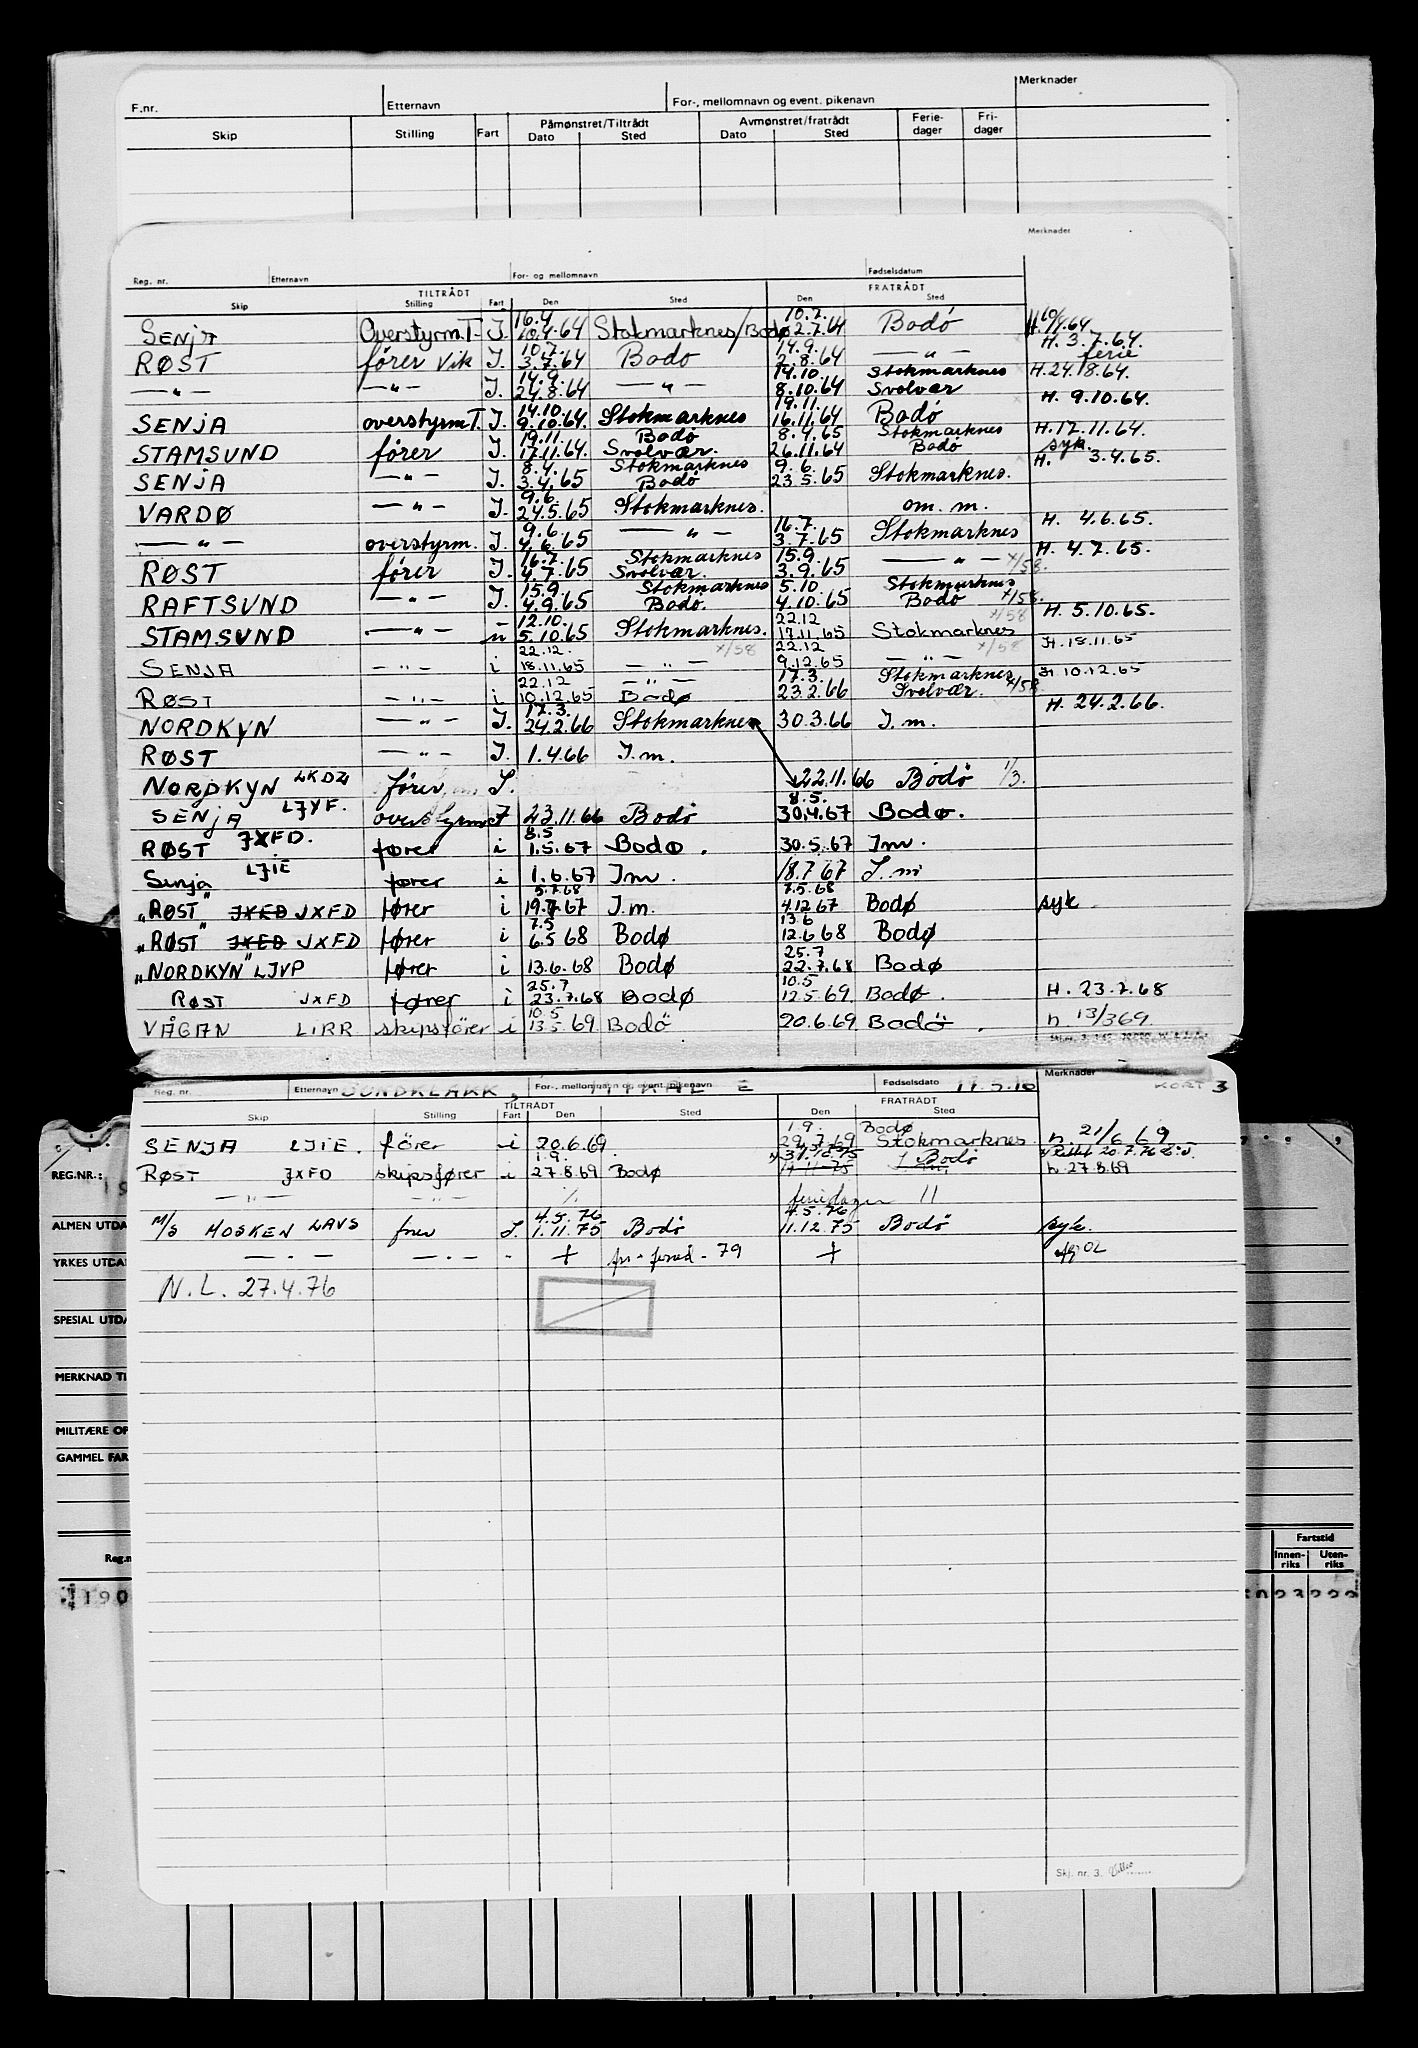 F.nr. Etternavn For-, mellomnavn og event. pikenavn Merknader
Skip Stilling Fart Påmønstret/Tiltrådt Dato Sted Avmønstret/fratrådt Dato Sted Ferie-dager Fri-dager
Merknader
Reg. nr. Etternavn For- og mellomnavn Fødselsdatum
TILTRÅDT FRATRÅDT
Skip Stilling Fart Den Sted Den Sted
16.4 10.7.
SENJA Overstyrm.T. I. 10.4.64 Stokmarknes/Bodø 2.7.64 Bodö
10.7. 14.9. H. 3.7.64.
RØST fører vik I. 3.7.64 Bodo 2.8.64 — " — ferie
14.9. 14.10. Stokmarknes H.24.18.64.
— " — — " — I. 24.8.64 — " — 8.10.64 Svolvær
14.10. 19.11. H. 9.10.64.
SENJA overstyrm T. I. 9.10.64. Stokmarknes 16.11.64 Bodö
19.11. Bodö 8.4.65 Stokmarknes H.17.11.64.
STAMSUND fører I. 17.11.64. Svolvær. 26.11.64 Bodö syk.
8.4. Stokmarknes 9.6. H. 3.4.65.
SENJA — " — I. 3.4.65 Bodö 23.5.65 Stokmarknes.
9.6.
VARDØ — " — I. 24.5.65 Stokmarknes. om. m.
9.6. 16.7. H. 4.6.65.
— " — overstyrm. I. 4.6.65 — " — 3.7.65 Stokmarknes
16.7. Stokmarknes 15.9. H. 4.7.65.
RØST fører I. 4.7.65 Svolvær. 3.9.65 — " — x/58.
15.9. Stokmarknes 5.10. Stokmarknes
RAFTSUND — " — I. 4.9.65 Bodö. 4.10.65 Bodö x/58.
12.10. 22.12 x/58 H. 5.10.65.
STAMSUND — " — u 5.10.65 Stokmarknes. 17.11.65 Stokmarknes
22.12. x/58 22.12 x/58 H.18.11.65
SENJA — " — i 18.11.65 — " — 9.12.65 — " —
22.12 — " — 17.3. Stokmarknes H 10.12.65
RØST — " — i 10.12.65 Bodø 23.2.66 Svolvær. x/58.
17.3. H. 24.2.66.
NORDKYN — " — I. 24.2.66 Stokmarknes 30.3.66 I.m.
RØST — " — I. 1.4.66 I.m.
NORDKYN LKDZ fører I. 22.11.66 Bodö 1/3.
8.5.
SENJA LJYF. overstyrm I 23.11.66 Bodö 30.4.67 Bodo.
8.5
RØST JXFD. fører i 1.5.67 Bodo. 30.5.67 Im.
Senja LJIE fører i 1.6.67 Im. 18.7.67 I.m
5.7.68 7.5.68
"RØST" JXED JXFD fører i 19.7.67 I.m. 4.12.67 Bodø syk
7.5 13.6
"RØST" JXED JXFD fører i 6.5 68 Bodø 12.6.68 Bodø
25.7
"NORDKYN" LJVP fører i 13.6.68 Bodø 22.7.68 Bodø
25.7 10.5
RØST JXFD fører i 23.7.68 Bodø 12.5.69 Bodø. H. 23.7.68
10.5
VÅGAN LIRR skipsfører i 13.5 69 Bodö 20.6.69 Bodö. h. 13/369.
Reg. nr. Etternavn For-, mellomnavn og event. pikenavn Fødselsdato Merknader KORT 3
TILTRÅDT FRATRÅDT
Skip Stilling Fart Den Sted Den Sted
1.9. Bodø
SENJA LJIE. förer i 20.6.69 29.7.69 Stokmarknes. h. 21/6 69
1.9. 31.10.75 Bodö
RØST JXFD skipsfører i 27.8.69 Bodø h. 27.8.69
— " — — " — feriedager 11
4.5.76 4.5.76
M/S MOSKEN LAVS fører I. 1.11.75 Bodö 11.12.75 Bodö syk.
— " — — " — " + 79 +
N.L. 27.4.76
Skj. nr. 3.
REG.NR.:
ALMEN UTDA
YRKES UTDA
SPESIAL UTDA
MERKNAD TI
MILITÆRE OP
GAMMEL FAR
Fartstid
Reg.n Innen-riks Uten-riks
190